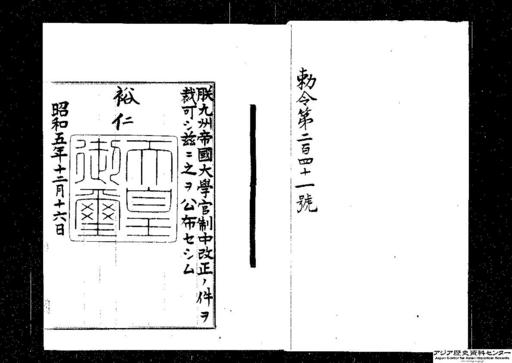 勅令第二百四十一號
朕九州帝國大學官制中改正ノ件ヲ
裁可シ茲ニ之ヲ公布セシム
裕仁
天皇御璽
昭和五年十二月十六日
アジア歴史資料センター
Japan Center for Asian Historical Records